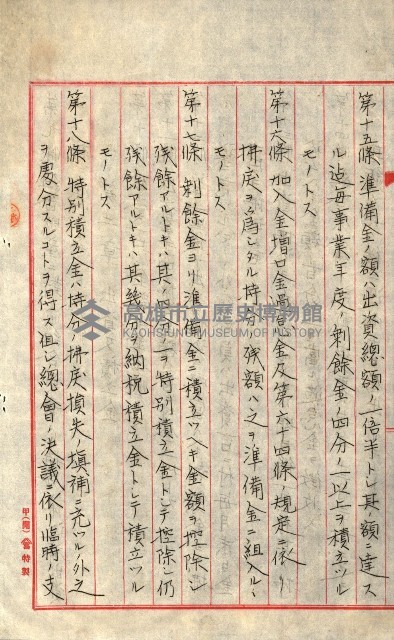 第十五條 準備金ノ額ハ出資總額ノ一倍半トシ其ノ額ニ達ス
ル迄每事業年度ノ剰餘金ノ四分ノ一以上ヲ積立ツル
モノトス
第十六條 加入金增口金過怠金及第六十四條ノ規定ニ依リ
拂戾ヲ爲シタル持分ノ殘額ハ之ヲ準備金ニ組入ルヽ
モノトス
第十七條 剰餘金ヨリ準備金ニ積立ツヘキ金額ヲ控除シ
殘餘アルトキハ其ノ四分ノ一ヲ特別積立金トシテ控除シ仍
殘餘アルトキハ其幾分ヲ納税積立金トシテ積立ツル
モノトス
第十八條 特別積立金ハ持分ノ拂戾損失ノ填補ニ充ツルノ外之
ヲ處分スルコトヲ得ス但シ總會ノ決議ニ依リ臨時ノ支
高雄市立歷史博物館
KAOHSIUNG MUSEUM OF HISTORY
特製